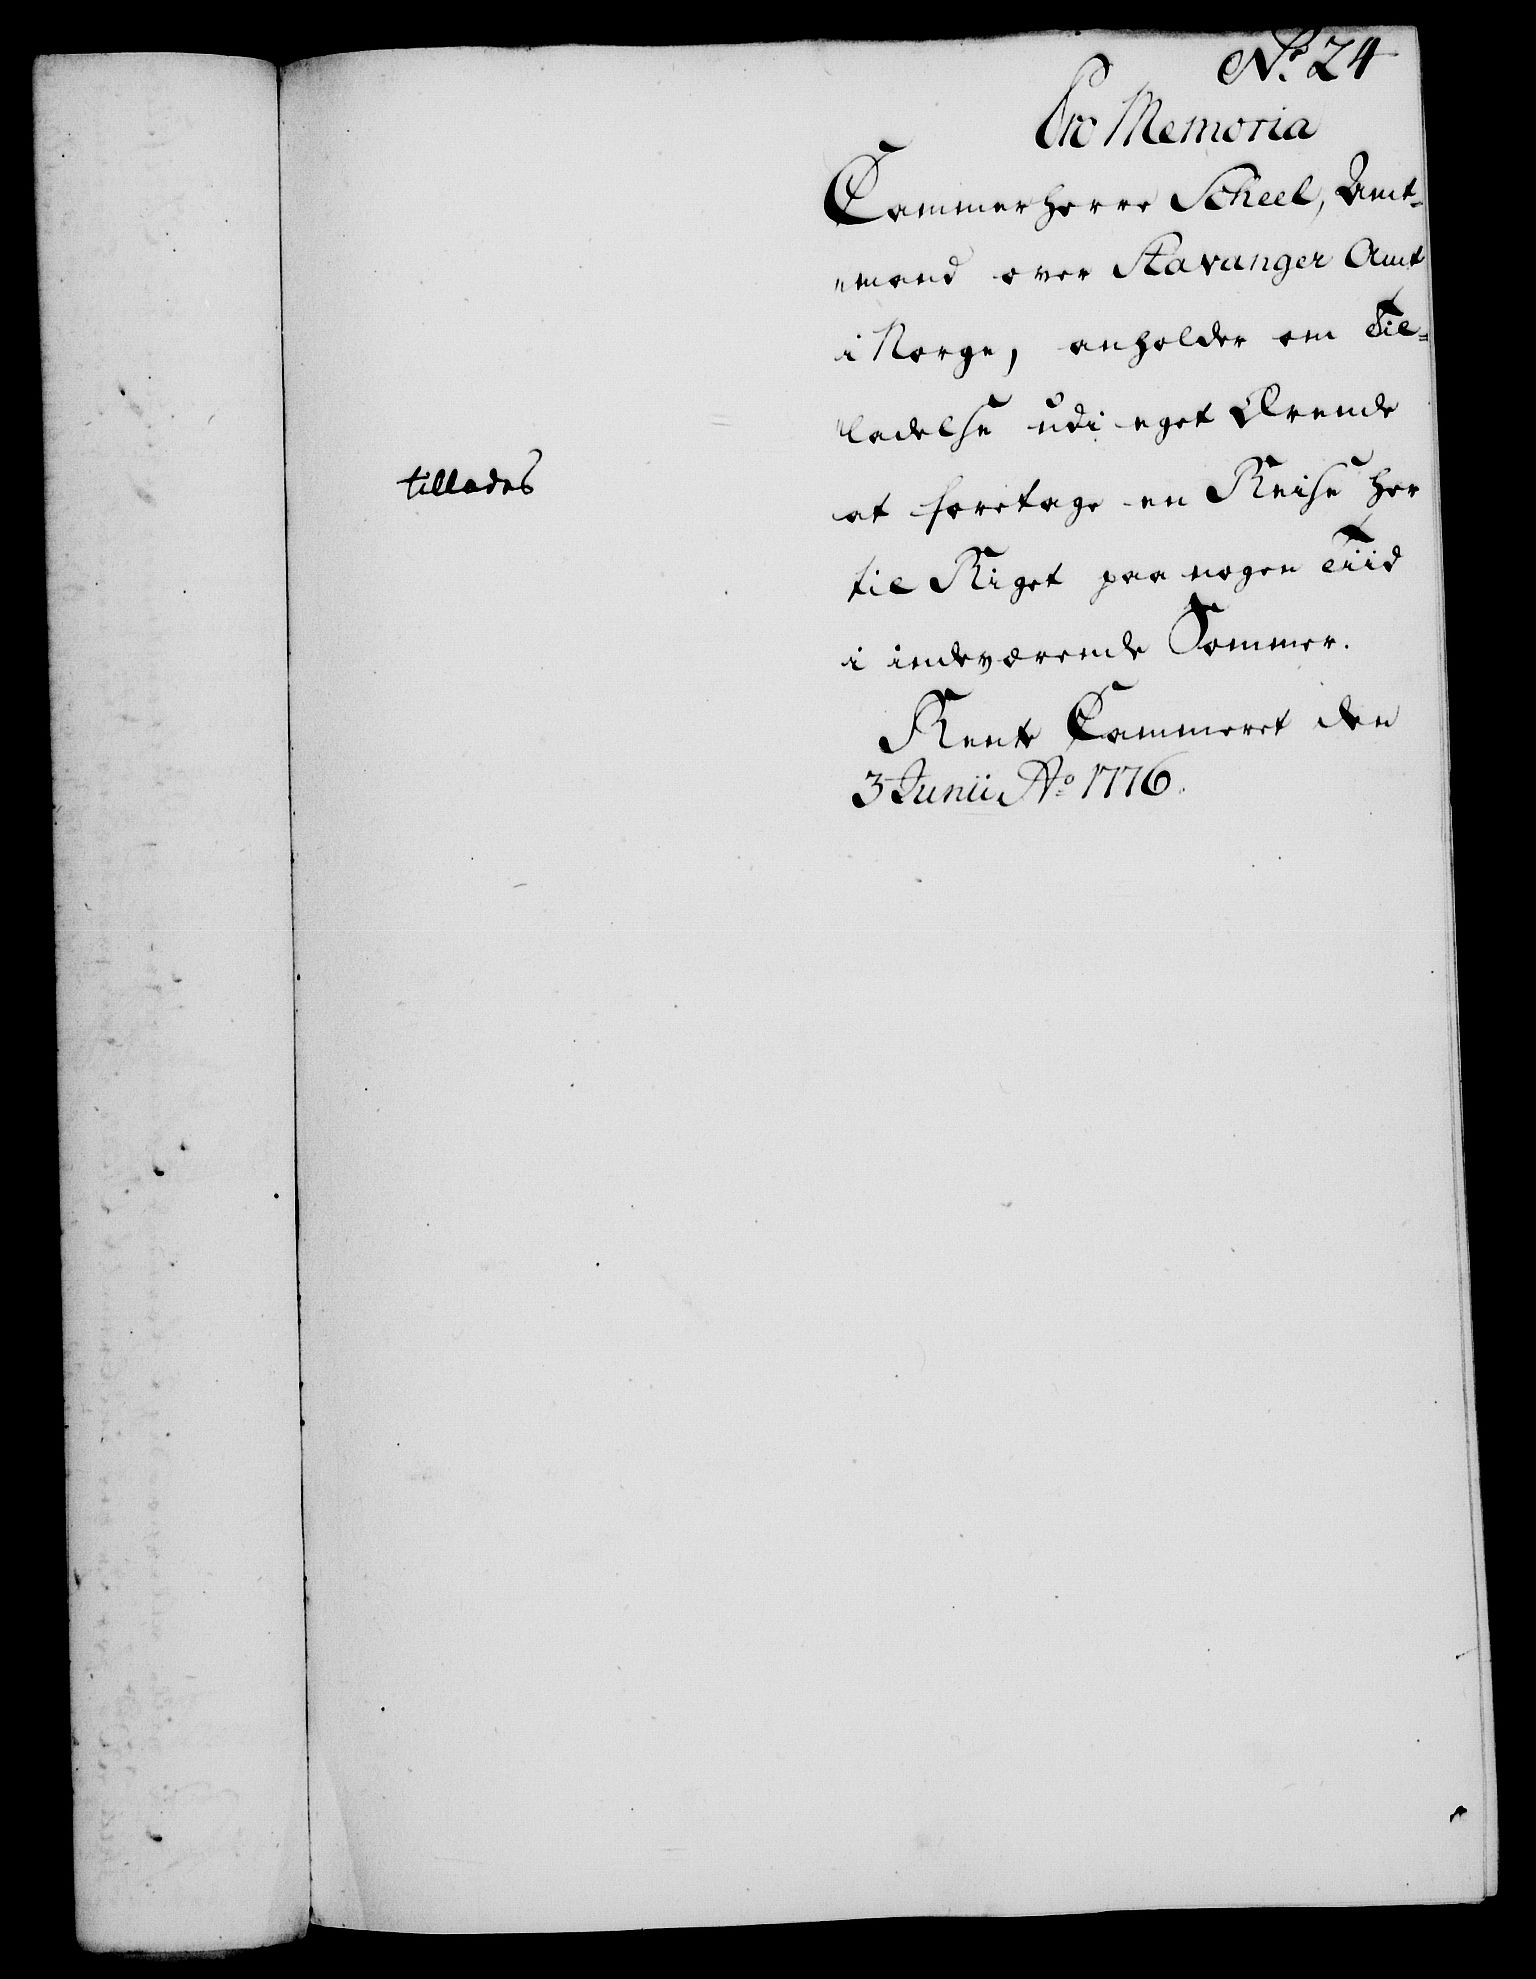 No. 24
Pro Memoria
Cammerherre Scheel, Amt-
mand over Stavanger Amt
i Norge, anholder om Til-
ladelse udi eget Ærende
tillades
at foretage en Reise her
til Riget paa nogen Tiid
i indeværende Sommer.
Rente Cammeret den
3 Junii Ao. 1776.